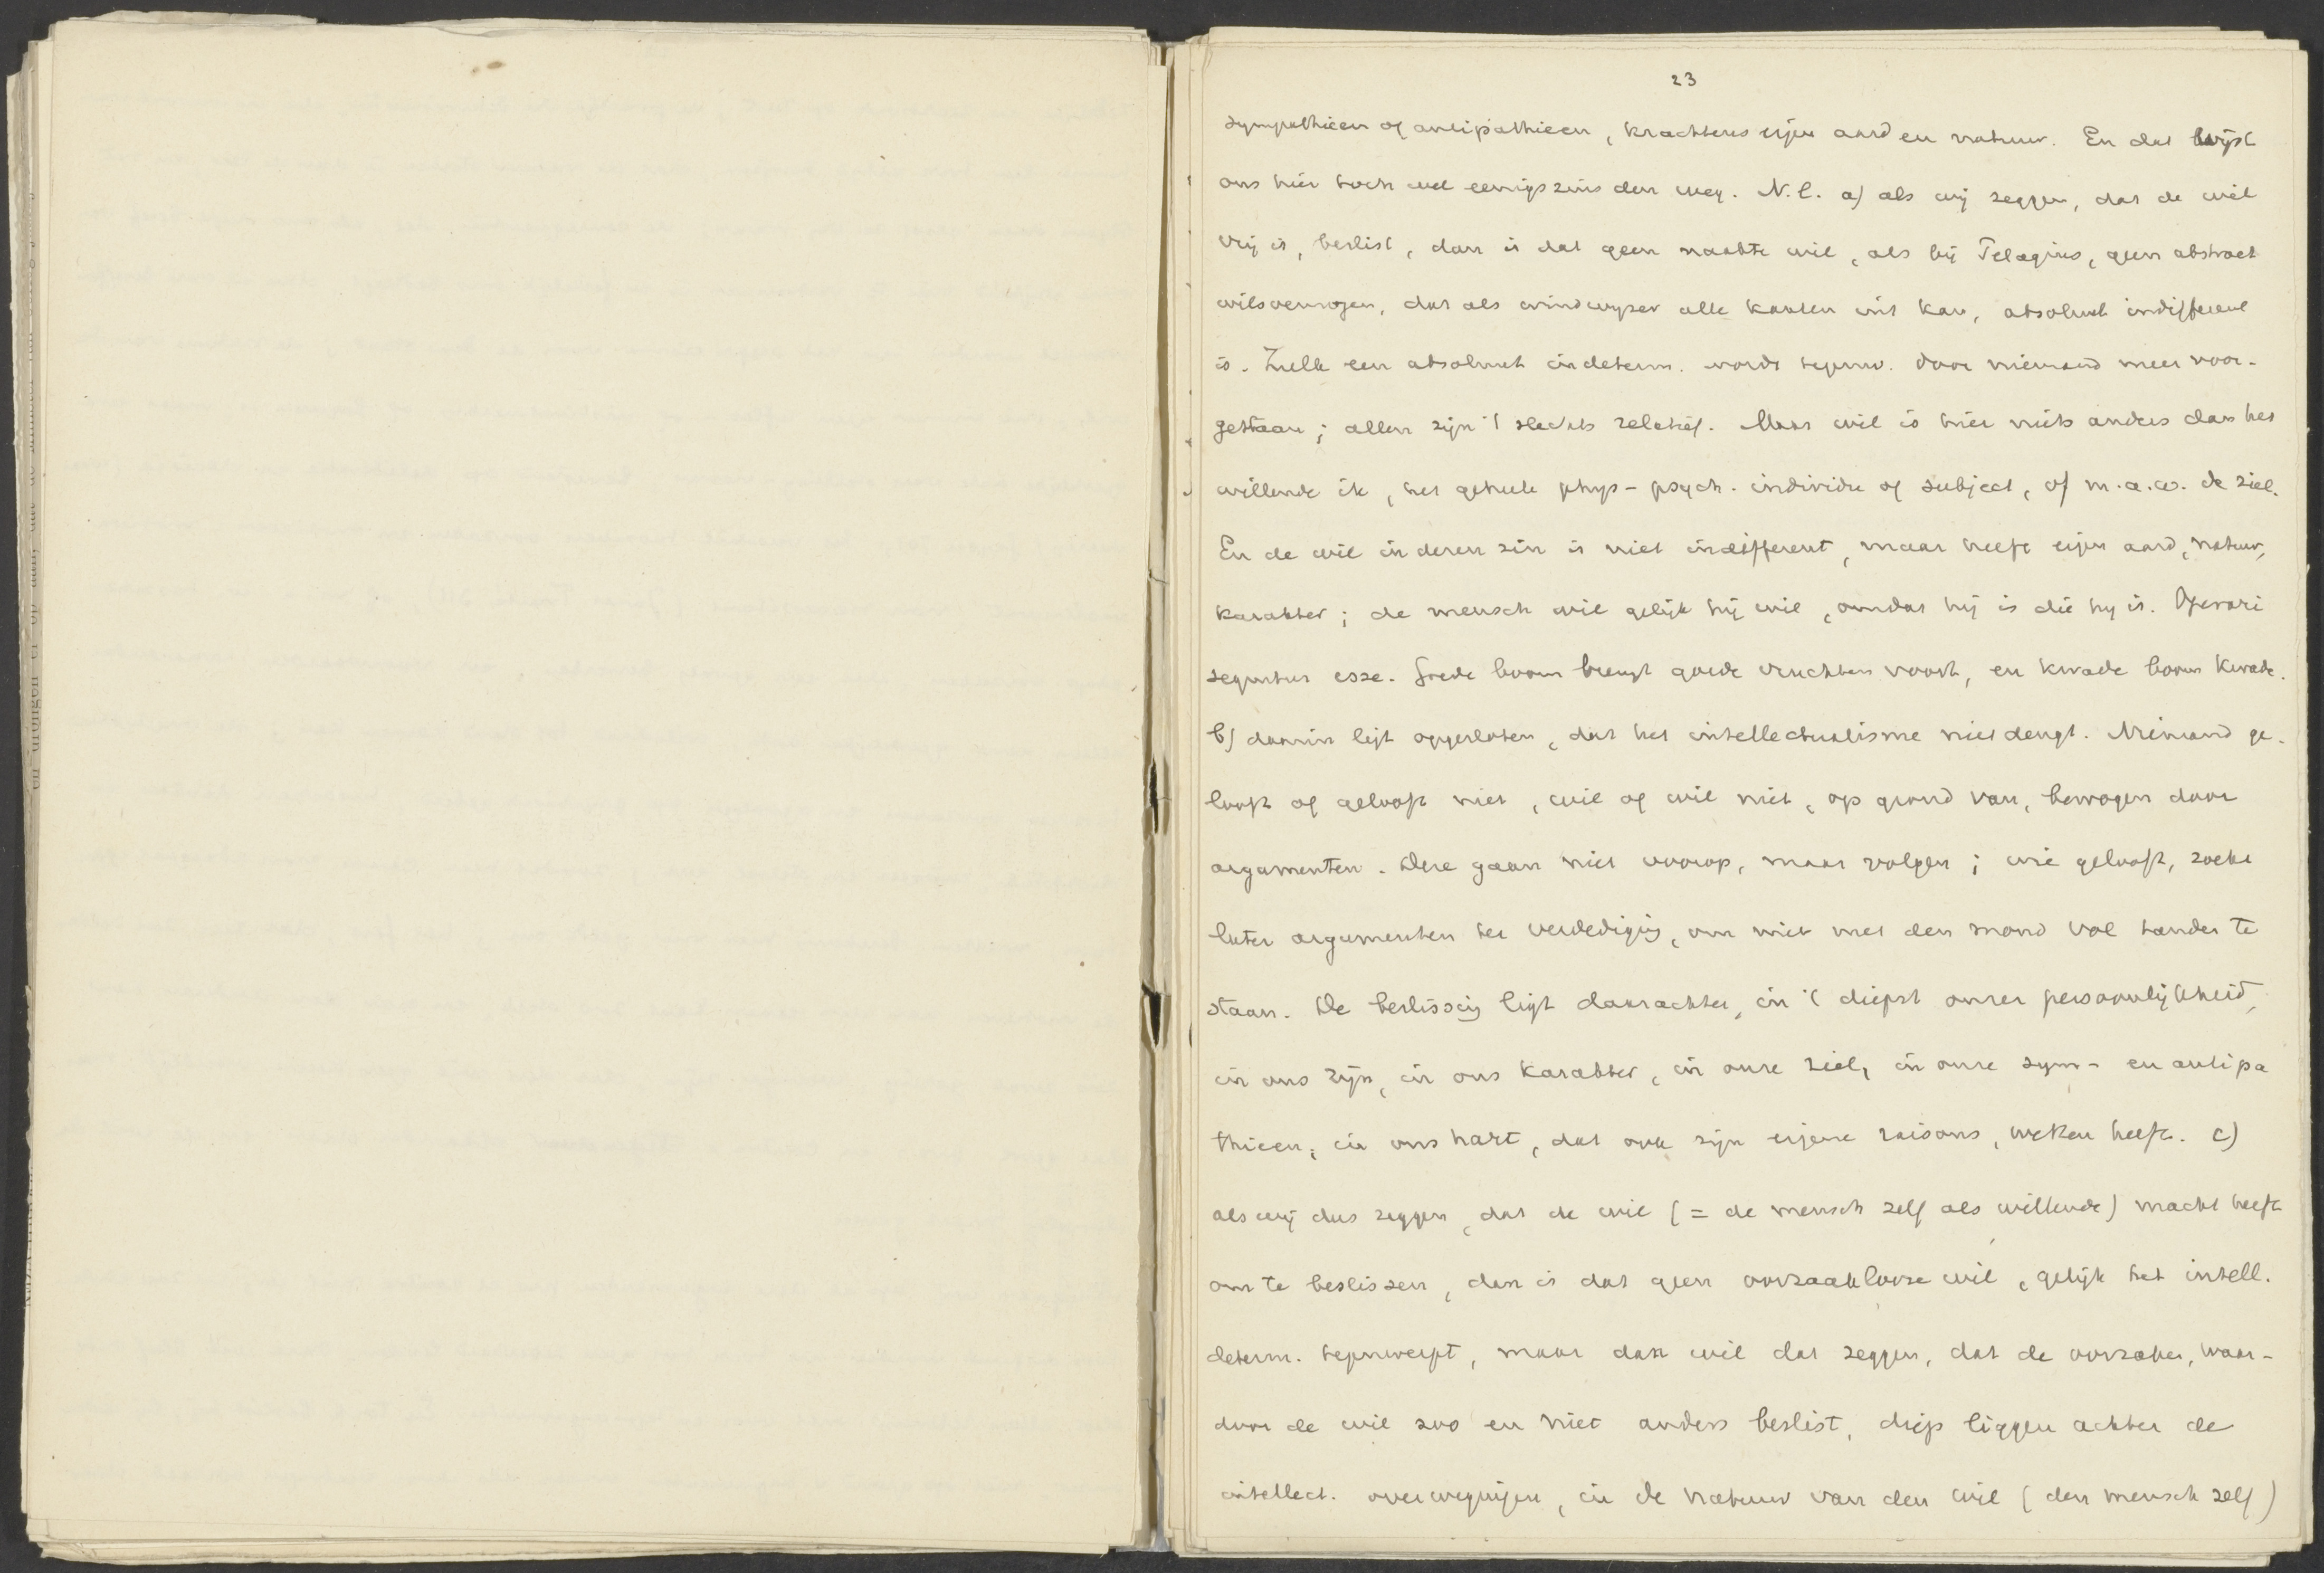 23
sympathieen of antipathieen, krachtens eigen aard en natuur. En dat wijst
ons hier toch wel eenigszins den weg. N.l. a) als wij zeggen, dat de wil
vrij is, beslist, dan is dat geen naakte wil, als bij Pelagius, geen abstract
wilsvermogen, dat als windwyzer alle kanten uit kan, absoluut indifferent
is. Zulk een absoluut indeterm. wordt tegenw. door niemand meer voor-
gestaan; allen zijn 't slechts relatief. Maar wil is hier niets anders dan het
willende ik, het geheele phys-psych. individu of subject, of m.a.w. de ziel.
En de wil in dezen zin is niet indifferent, maar heeft eigen aard, natuur,
karakter; de mensch wil gelijk hij wil, omdat hij is die hy is. Operari
sequitur esse. Goede boom brengt goede vruchten voort, en kwade boom kwade.
b) daarin ligt opgesloten, dat het intellectualisme niet deugt. Niemand ge-
looft of gelooft niet, wil of wil niet, op grond van, bewogen door
argumenten. Deze gaan niet voorop, maar volgen; wie gelooft, zoekt
later argumenten ter verdediging, om niet met den mond vol tanden te
staan. De beslissing ligt daarachter, in 't diepst onzer persoonlijkheid,
in ons zijn, in ons karakter, in onze ziel, in onze sym- en antipa
thieen, in ons hart, dat ook zijn eigene raisons, wetten heeft. c)
als wij dus zeggen, dat de wil (= de mensch zelf als willende) macht heeft
om te beslissen, dan is dat geen oorzaaklooze wil, gelijk het intell.
determ. tegenwerpt, maar dan wil dat zeggen, dat de oorzaken, waar-
door de wil zoo en niet anders beslist, diep liggen achter de
intellect. overwegingen, in de natuur van den wil (den mensch zelf)